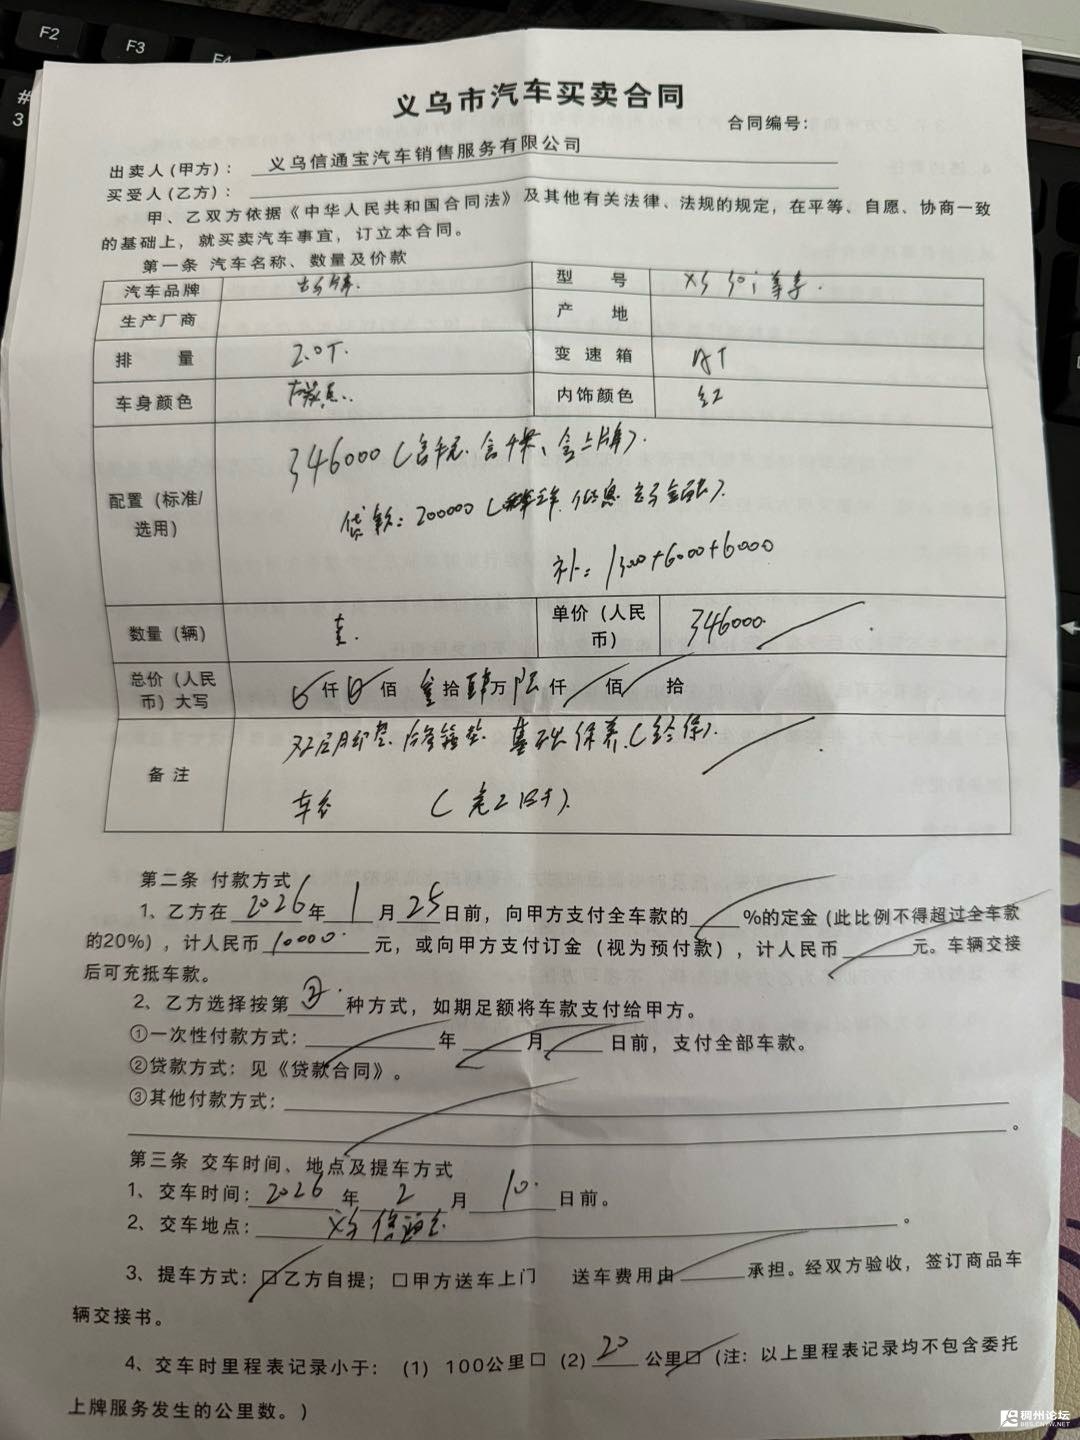 F2
F3
F4
#
3
义乌市汽车买卖合同
合同编号：
出卖人(甲方)： 义乌信通宝汽车销售服务有限公司
买受人(乙方)：
甲、乙双方依据《中华人民共和国合同法》及其他有关法律、法规的规定，在平等、自愿、协商一致
的基础上，就买卖汽车事宜，订立本合同。
第一条 汽车名称、数量及价款
汽车品牌 型 号 X3 30i
生产厂商 产 地
排 量 2.0T. 变速箱 AT
车身颜色 内饰颜色 红
配置（标准/
选用）
346000（含税、含保、含上牌）.
贷款：200000
补：1300+6000+6000
数量（辆） 壹. 单价（人民
币） 346000.
总价（人民
币）大写 仟 佰 叁拾肆万陆仟 佰 拾
备注
基础保养
车衣
第二条 付款方式
1、乙方在2026年1月25日前，向甲方支付全车款的 %的定金(此比例不得超过全车款
的20%)，计人民币10000.元，或向甲方支付订金（视为预付款），计人民币 元。车辆交接
后可充抵车款。
2、乙方选择按第②种方式，如期足额将车款支付给甲方。
①一次性付款方式： 年 月 日前，支付全部车款。
②贷款方式：见《贷款合同》。
③其他付款方式：
。
第三条 交车时间、地点及提车方式
1、交车时间：2026年2月10.日前。
2、交车地点：义乌信通宝 。
3、提车方式：☑乙方自提；□甲方送车上门 送车费用由 承担。经双方验收，签订商品车
辆交接书。
4、交车时里程表记录小于：(1) 100公里□ (2) 20 公里☑（注：以上里程表记录均不包含委托
上牌服务发生的公里数。）
稠州论坛
BBS.CNYW.NET